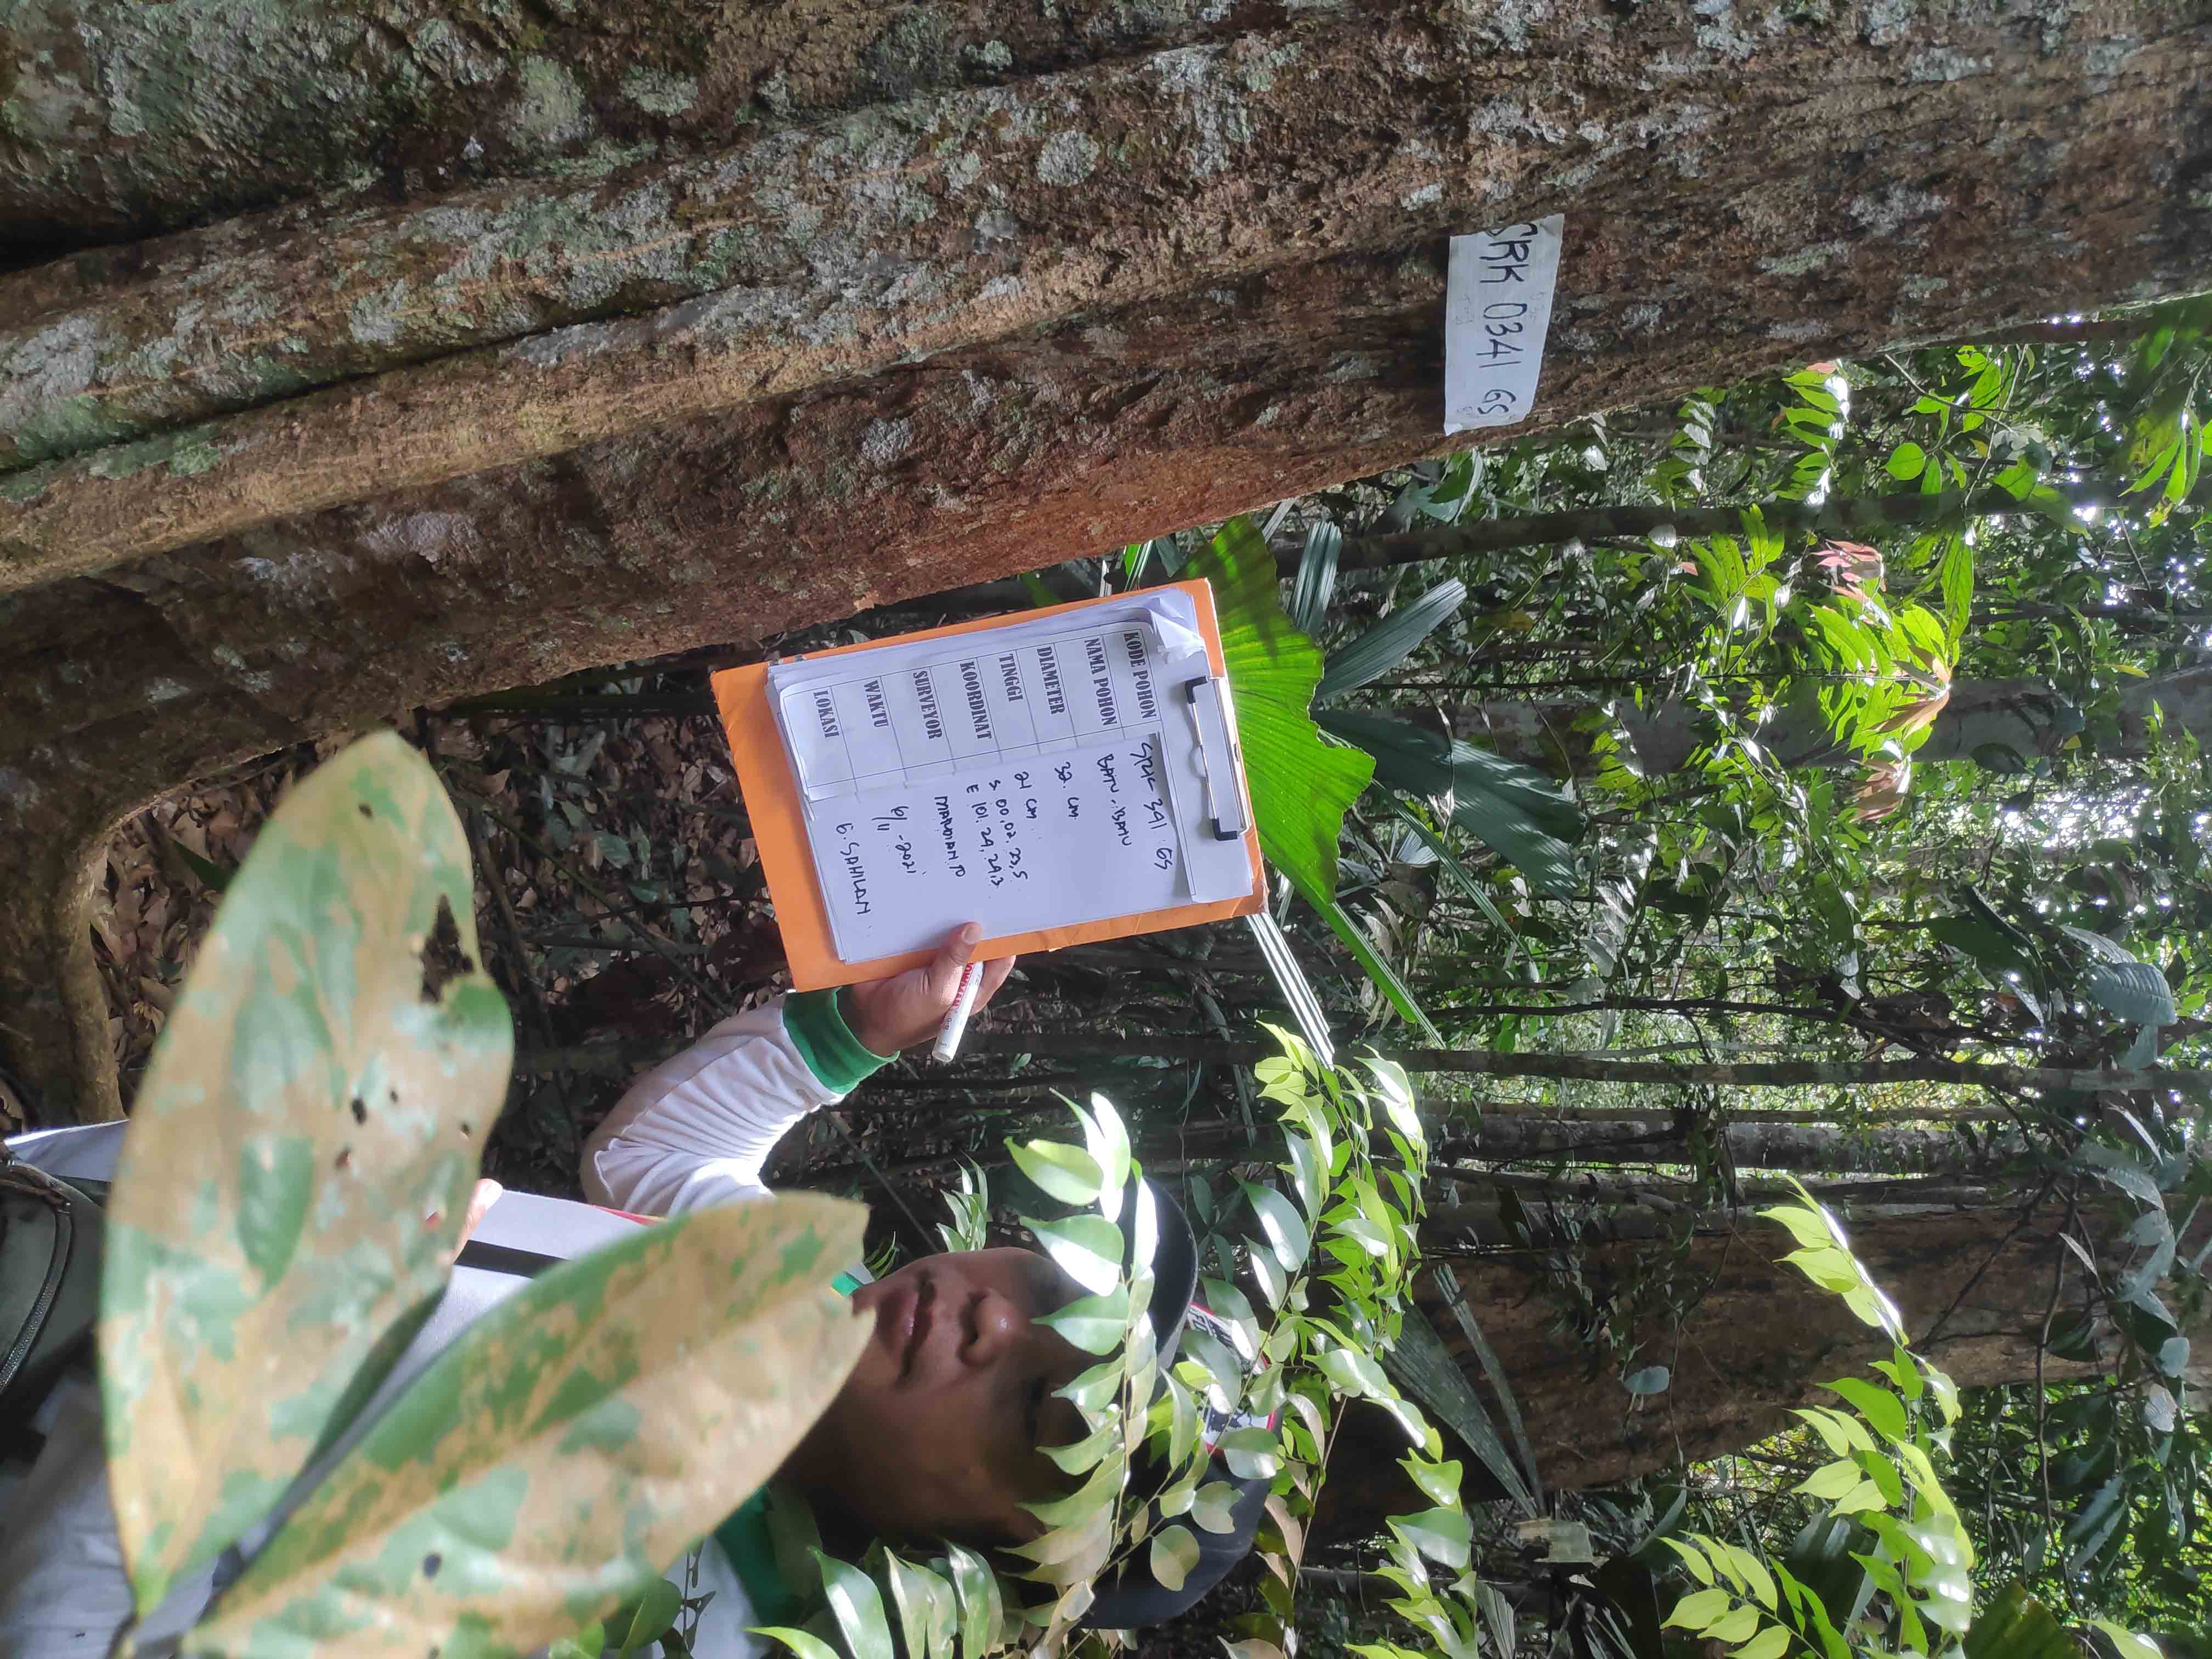 SRK 0341 GS
KODE POHON SRK - 341 GS
NAMA POHON BATU-BATU
DIAMETER 32 CM
TINGGI 21 CM
KOORDINAT S 00.02.23,5
E 101.24.24,3
SURVEYOR
WAKTU 6/11-2021
LOKASI G. SAHILAN